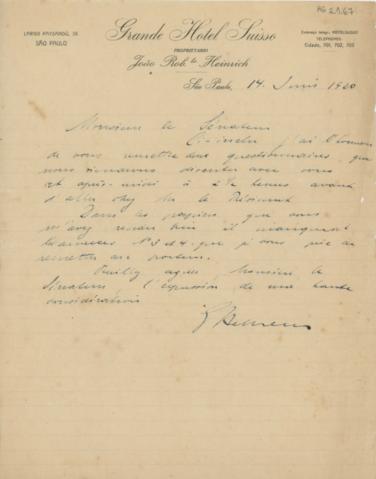 AG 21.67
LARGO PAYSANDÚ, 38
SÃO PAULO
Grande Hotel Suisso
PROPRIETARIO
João Rob. to Heinrich
Endereço telegr. HOTELSUISSO
TELEPHONES
Cidade, 701, 702, 703
São Paulo, 14 Juni 1920
Monsieur le Sénateur
j'ai l'honneur
de vous remettre des questionnaires, que
nous viendrons discuter avec vous
cet après-midi à 2 1/2 heures avant
d'aller chez Mr le Président
Dans les papiers, que vous
m'avez remis hier il manquent
les annexes No 3 et 4 que je vous prie de
remettre au porteur.
Veuillez agréer, Monsieur le
Sénateur, l'expression de ma haute
considération